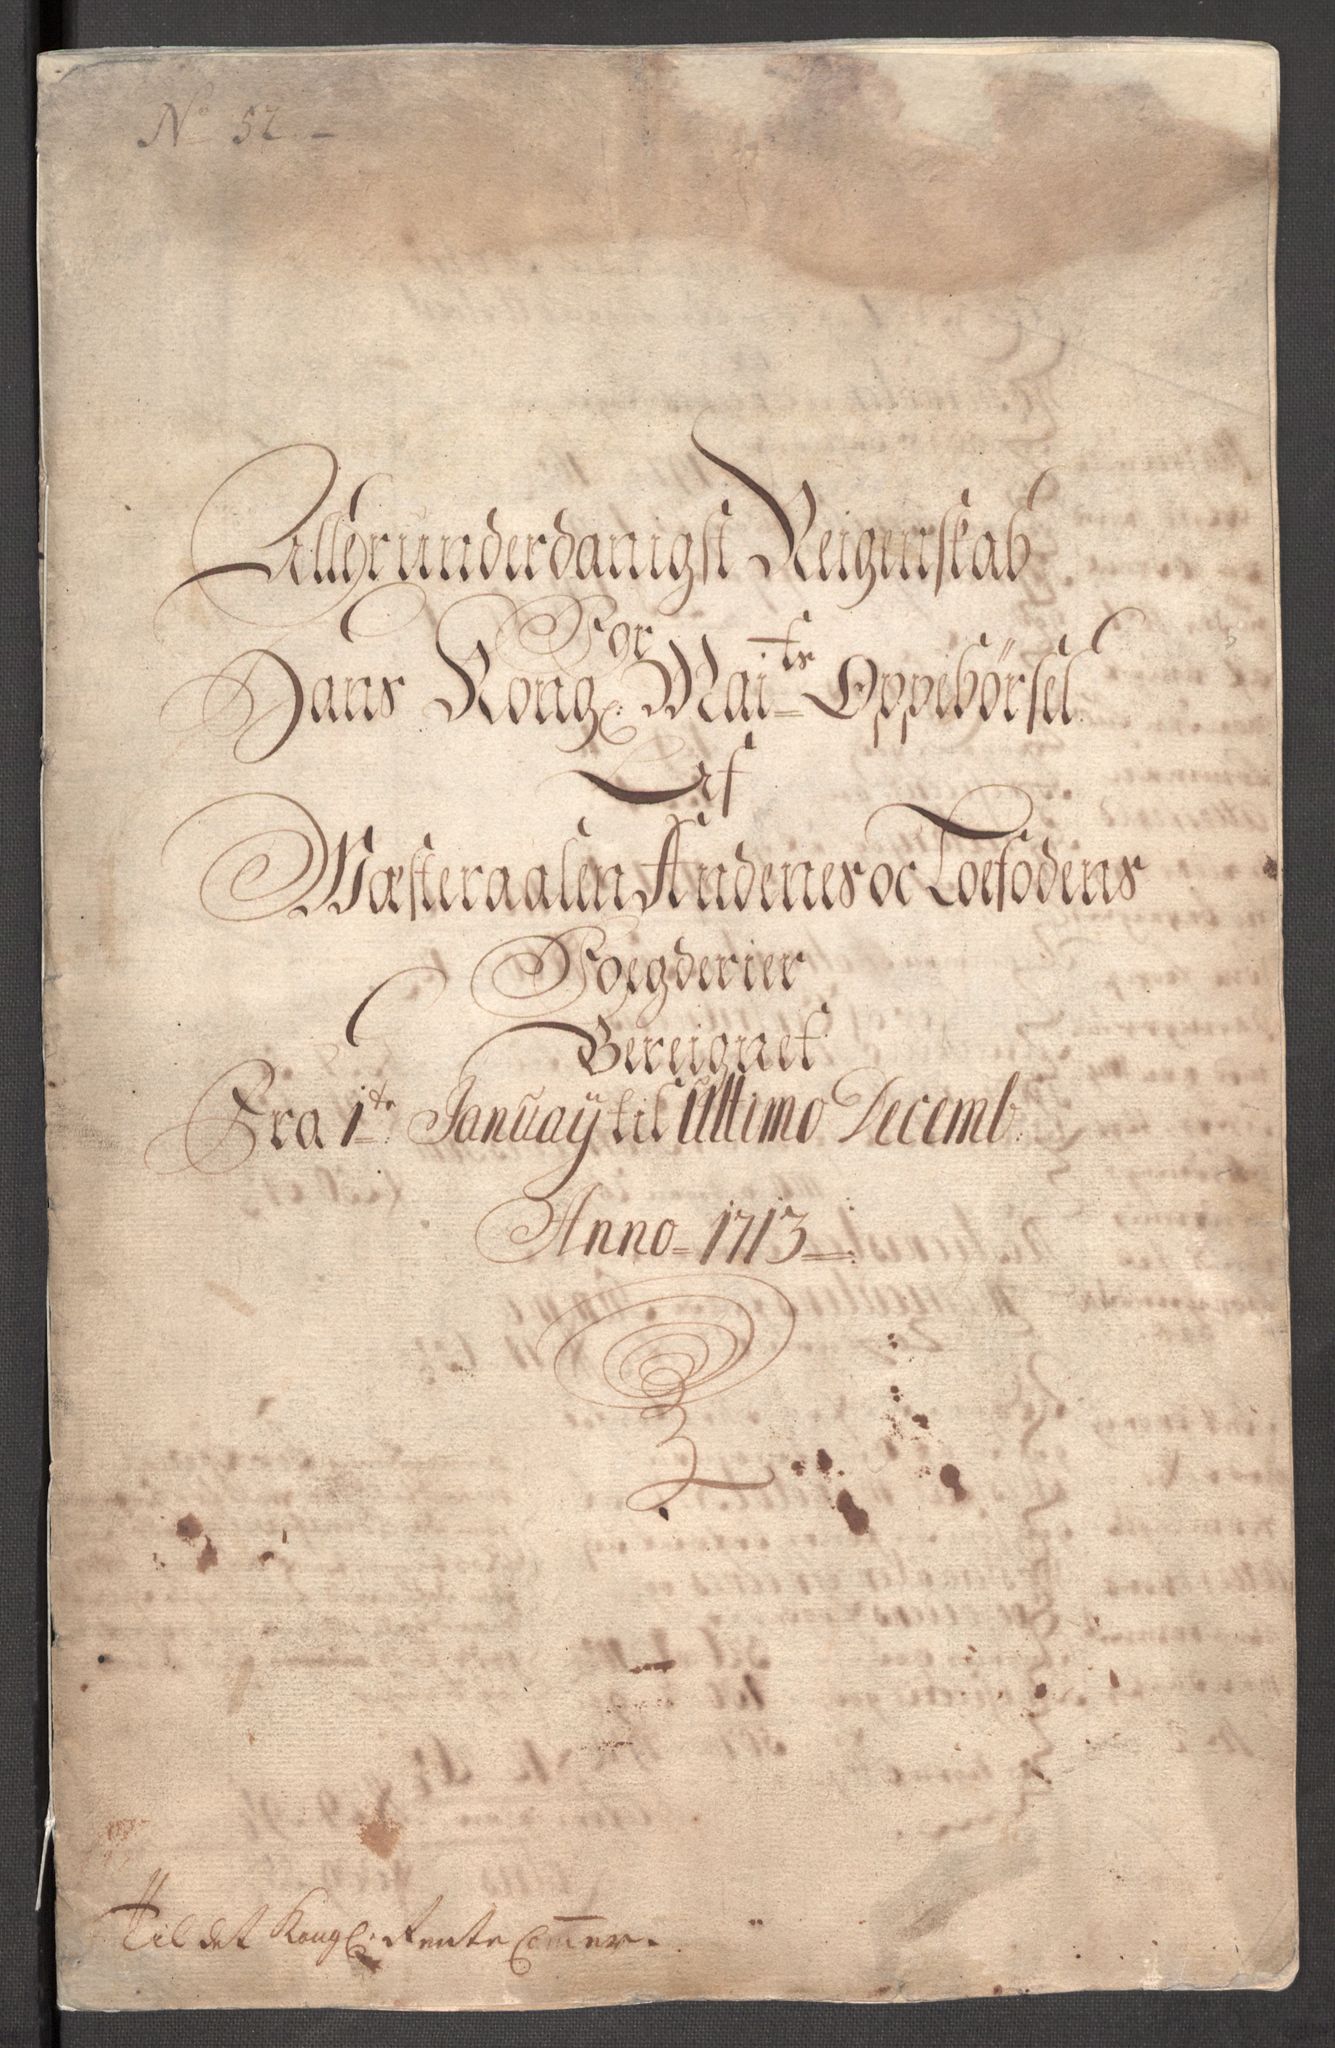 No 52.
Allerunderdanigst Reigenskab
For
Hans Kong. Maits Oppebörsel
Af
Wæsteraalen Andenes oc Loefodens
Foegderier
Bereignet
Fra 1te January til Ultimo Decemb.
Anno 1713.
Til det Kongl. Rente Cammer.